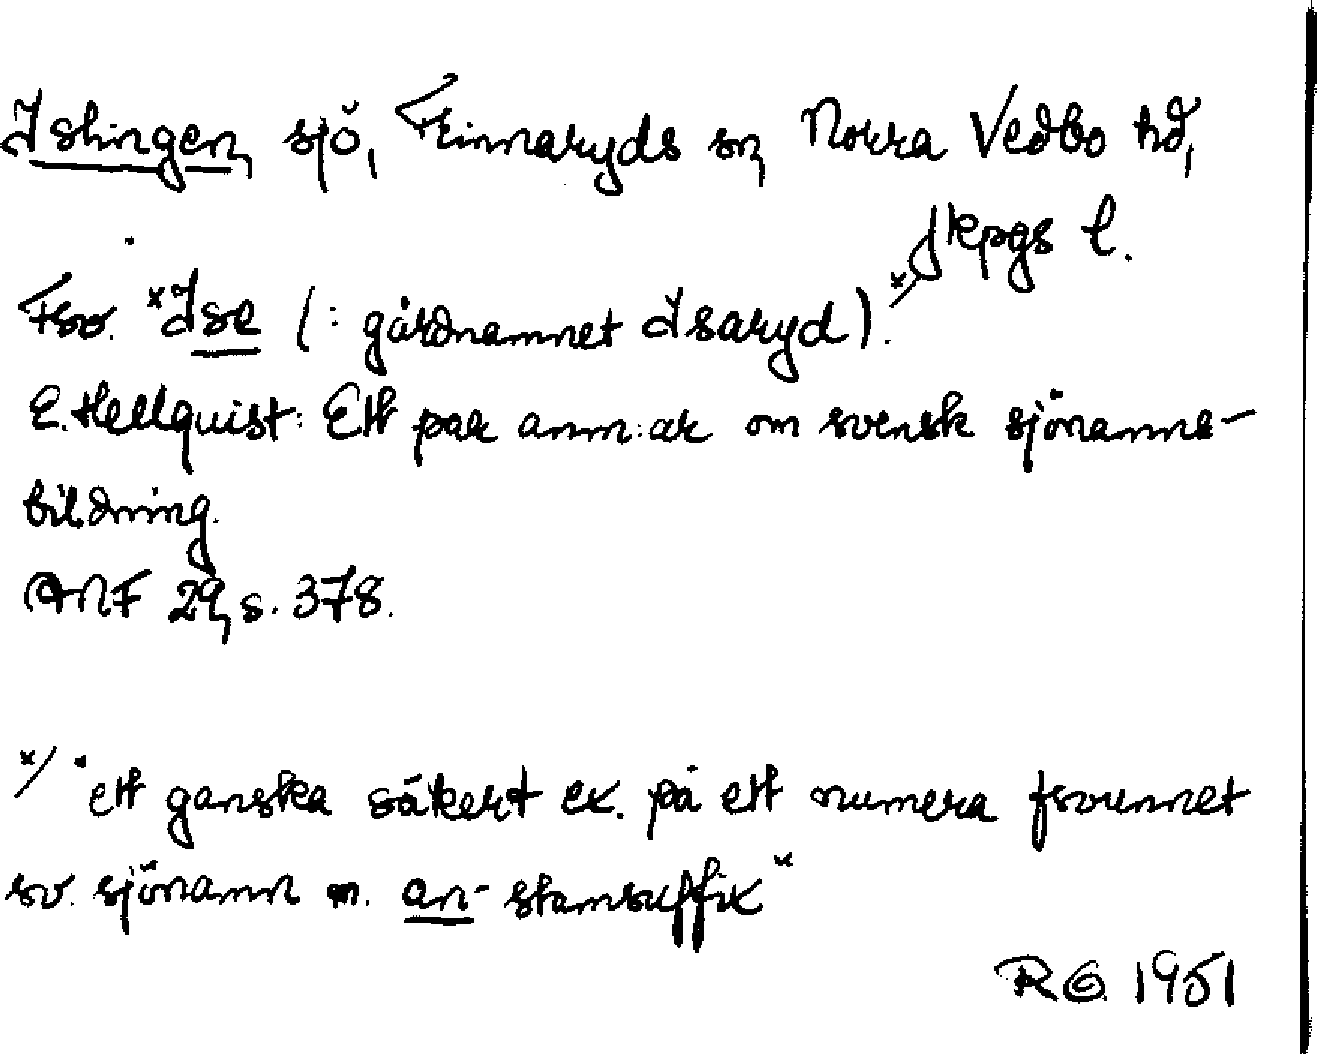 Islingen, sjö, Finnaryds sn, Norra Vedbo hd,
Jkpgs l.
Fsv. *Ise (: gårdnamnet Isaryd). x/
E. Hellquist: Ett par anm:ar om svensk sjönamns-
bildning.
ANF 29, s. 378.
x/ "ett ganska säkert ex. på ett numera försvunnet
sv. sjönamn m. an-stamsuffix"
RG 1951